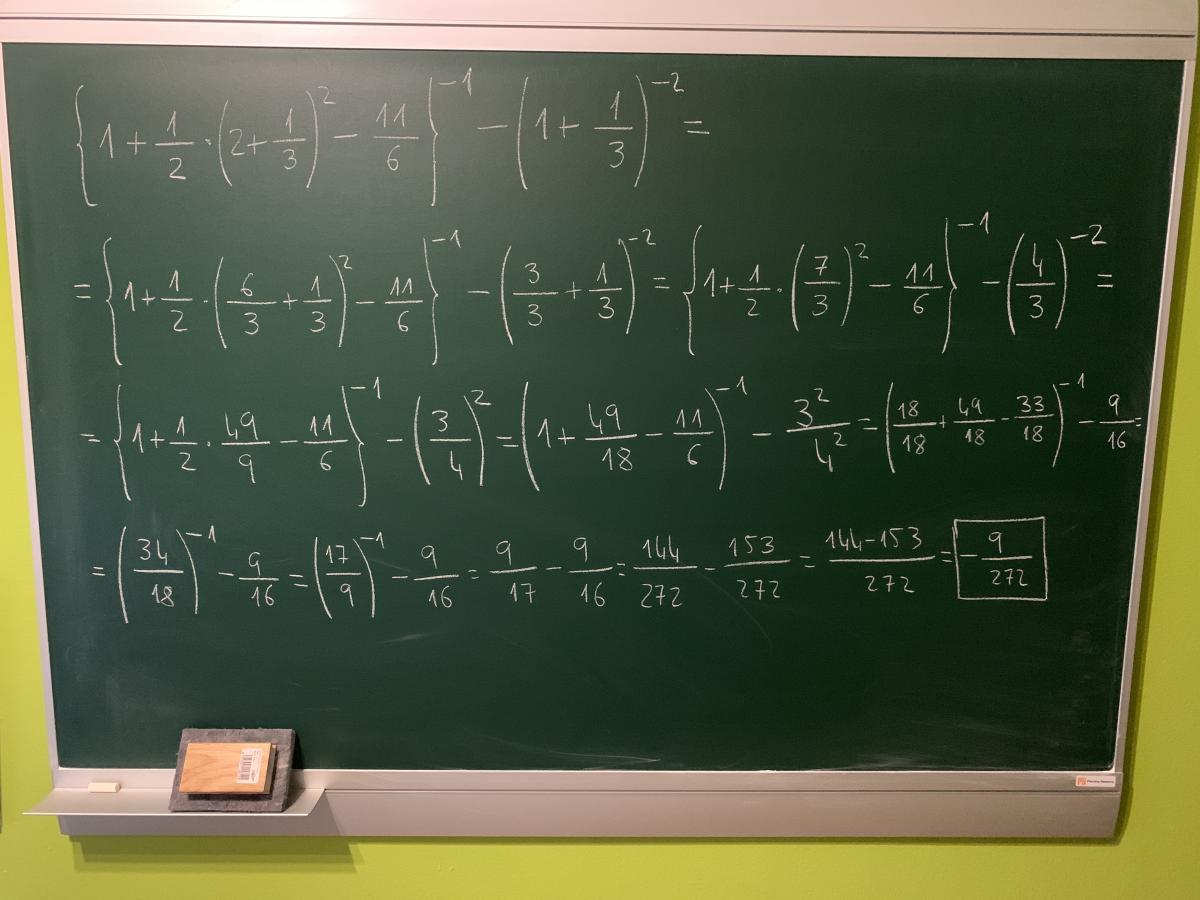 {1 + 1/2 · (2 + 1/3)² − 11/6}⁻¹ − (1 + 1/3)⁻² =
= {1 + 1/2 · (6/3 + 1/3)² − 11/6}⁻¹ − (3/3 + 1/3)⁻² = {1 + 1/2 · (7/3)² − 11/6}⁻¹ − (4/3)⁻² =
= {1 + 1/2 · 49/9 − 11/6}⁻¹ − (3/4)² = (1 + 49/18 − 11/6)⁻¹ − 3²/4² = (18/18 + 49/18 − 33/18)⁻¹ − 9/16 =
= (34/18)⁻¹ − 9/16 = (17/9)⁻¹ − 9/16 = 9/17 − 9/16 = 144/272 − 153/272 = 144−153/272 = −9/272